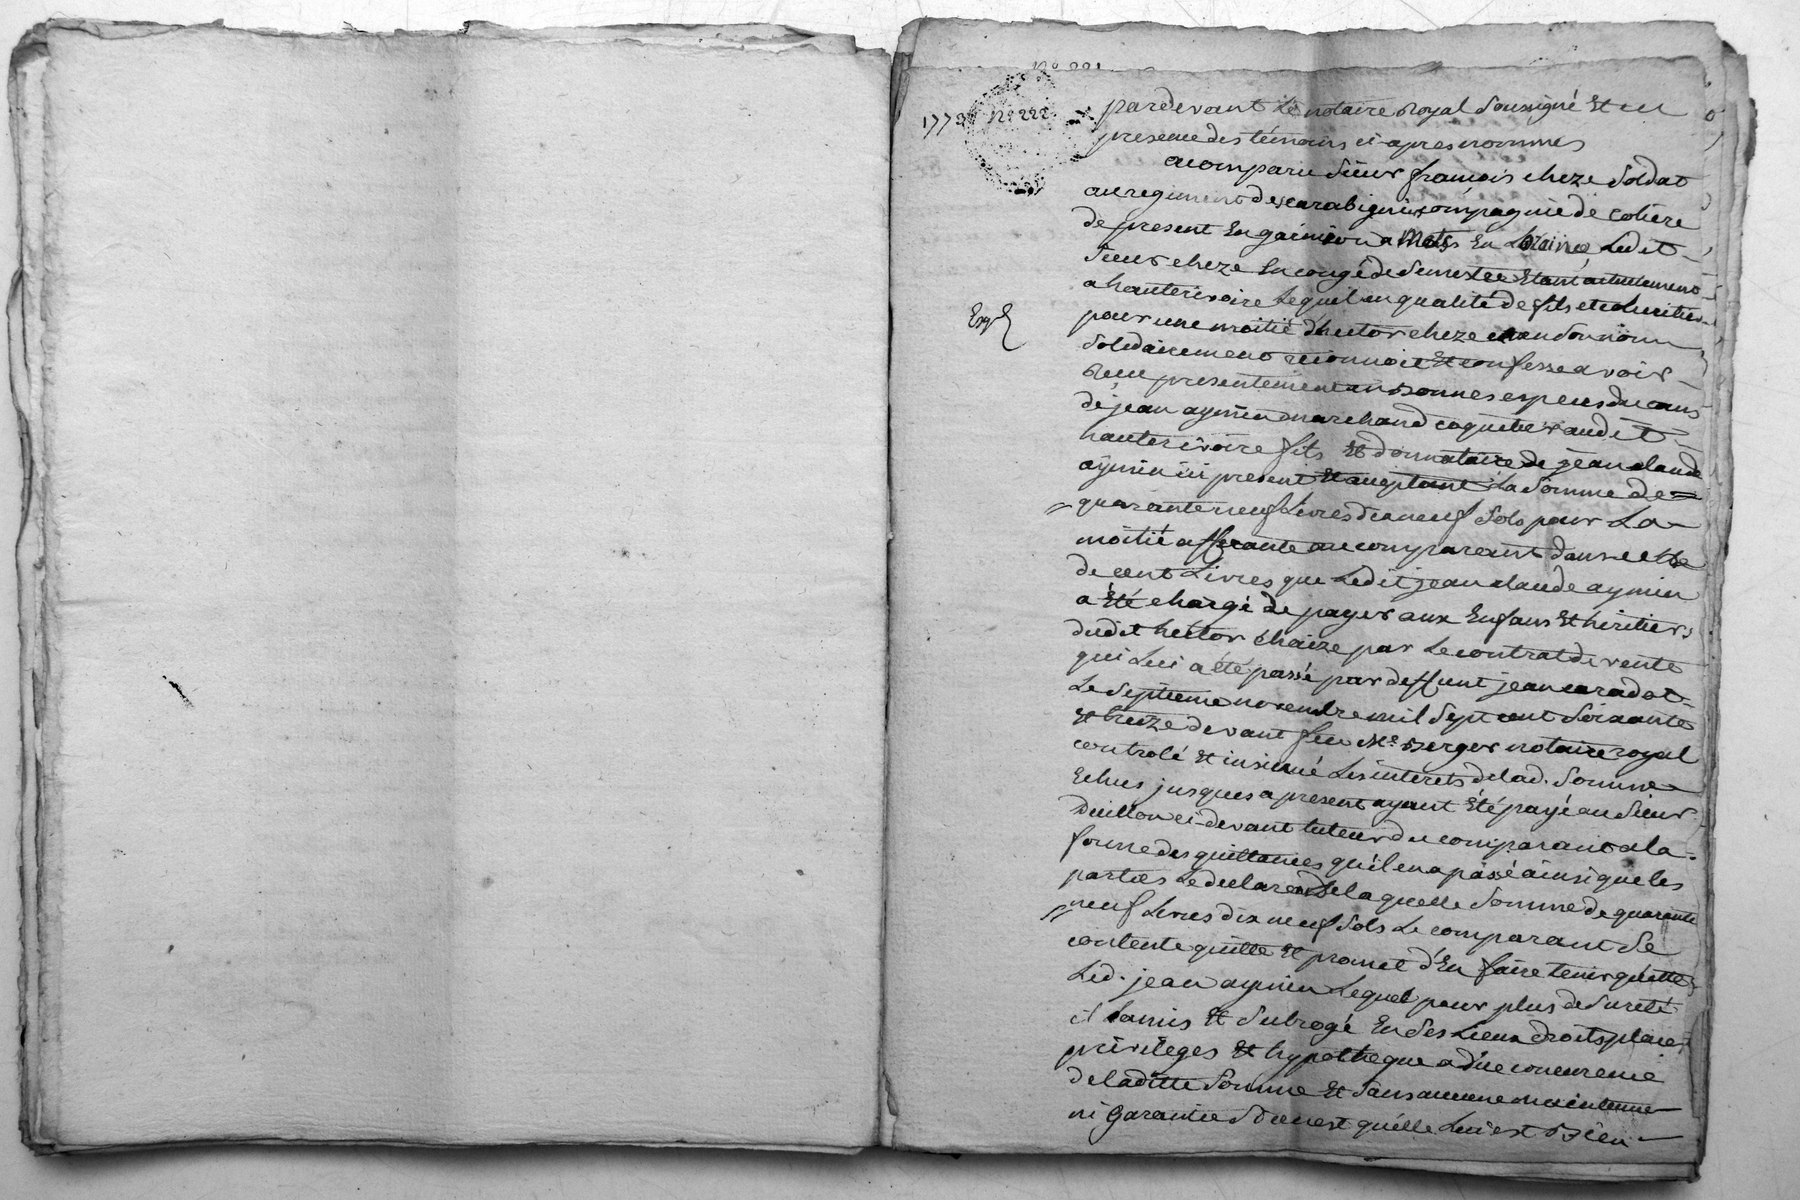 N° 221
1773 N° 222.
pardevant Le notaire Royal Soussigné Et en
presence des témoins ci-apres nommes
a comparu Sieur françois cheze Soldat
au regiment des carabiniers compagnie de
de present En garnison a Mets En Loraine Ledit
Sieur cheze En congé de Semestre Etant actuellement
a hauterivoire Lequel en qualité de fils et coheritier
Exp
pour une moitié d'hector cheze
Solidairement reconnoit Et confesse avoir
Reçu presentement en bonnes especes du cours
de jean aymin marchand coquetier audit
hauterivoire fils Et donnataire de jean claude
aymin ici present Et acceptant La Somme de
quarante neuf Livres dix neuf Sols pour La
moitié afferante au comparant dans celle
de cent Livres que Ledit jean claude aymin
a Eté chargé de payer aux Enfans Et héritiers
dudit héctor chaize par Le contrat de vente
qui Lui a été passé par deffunt jean caradot
Le Septieme novembre mil Sept cent Soixante
Et treize devant feu Me Berger notaire royal
controlé Et insinué Les interets de lad. Somme
Echus jusques a present ayant Eté payé au Sieur
ci-devant tuteur du comparant a la
forme des quittances qu'il en a passé ainsi que les
parties Le declarent de laquelle Somme de quarante
neuf Livres dix neuf Sols Le comparant Se
contente quitte Et promet d'En faire tenir quitte
Led. jean aymin Lequel pour plus de Sureté
il a mis Et Subrogé En Ses Lieux droits place
privileges Et hypotheque a düe concurence
de laditte Somme Et Sans aucune maintenue
ni Garantie Si ce n'est qu'elle Lui est bien